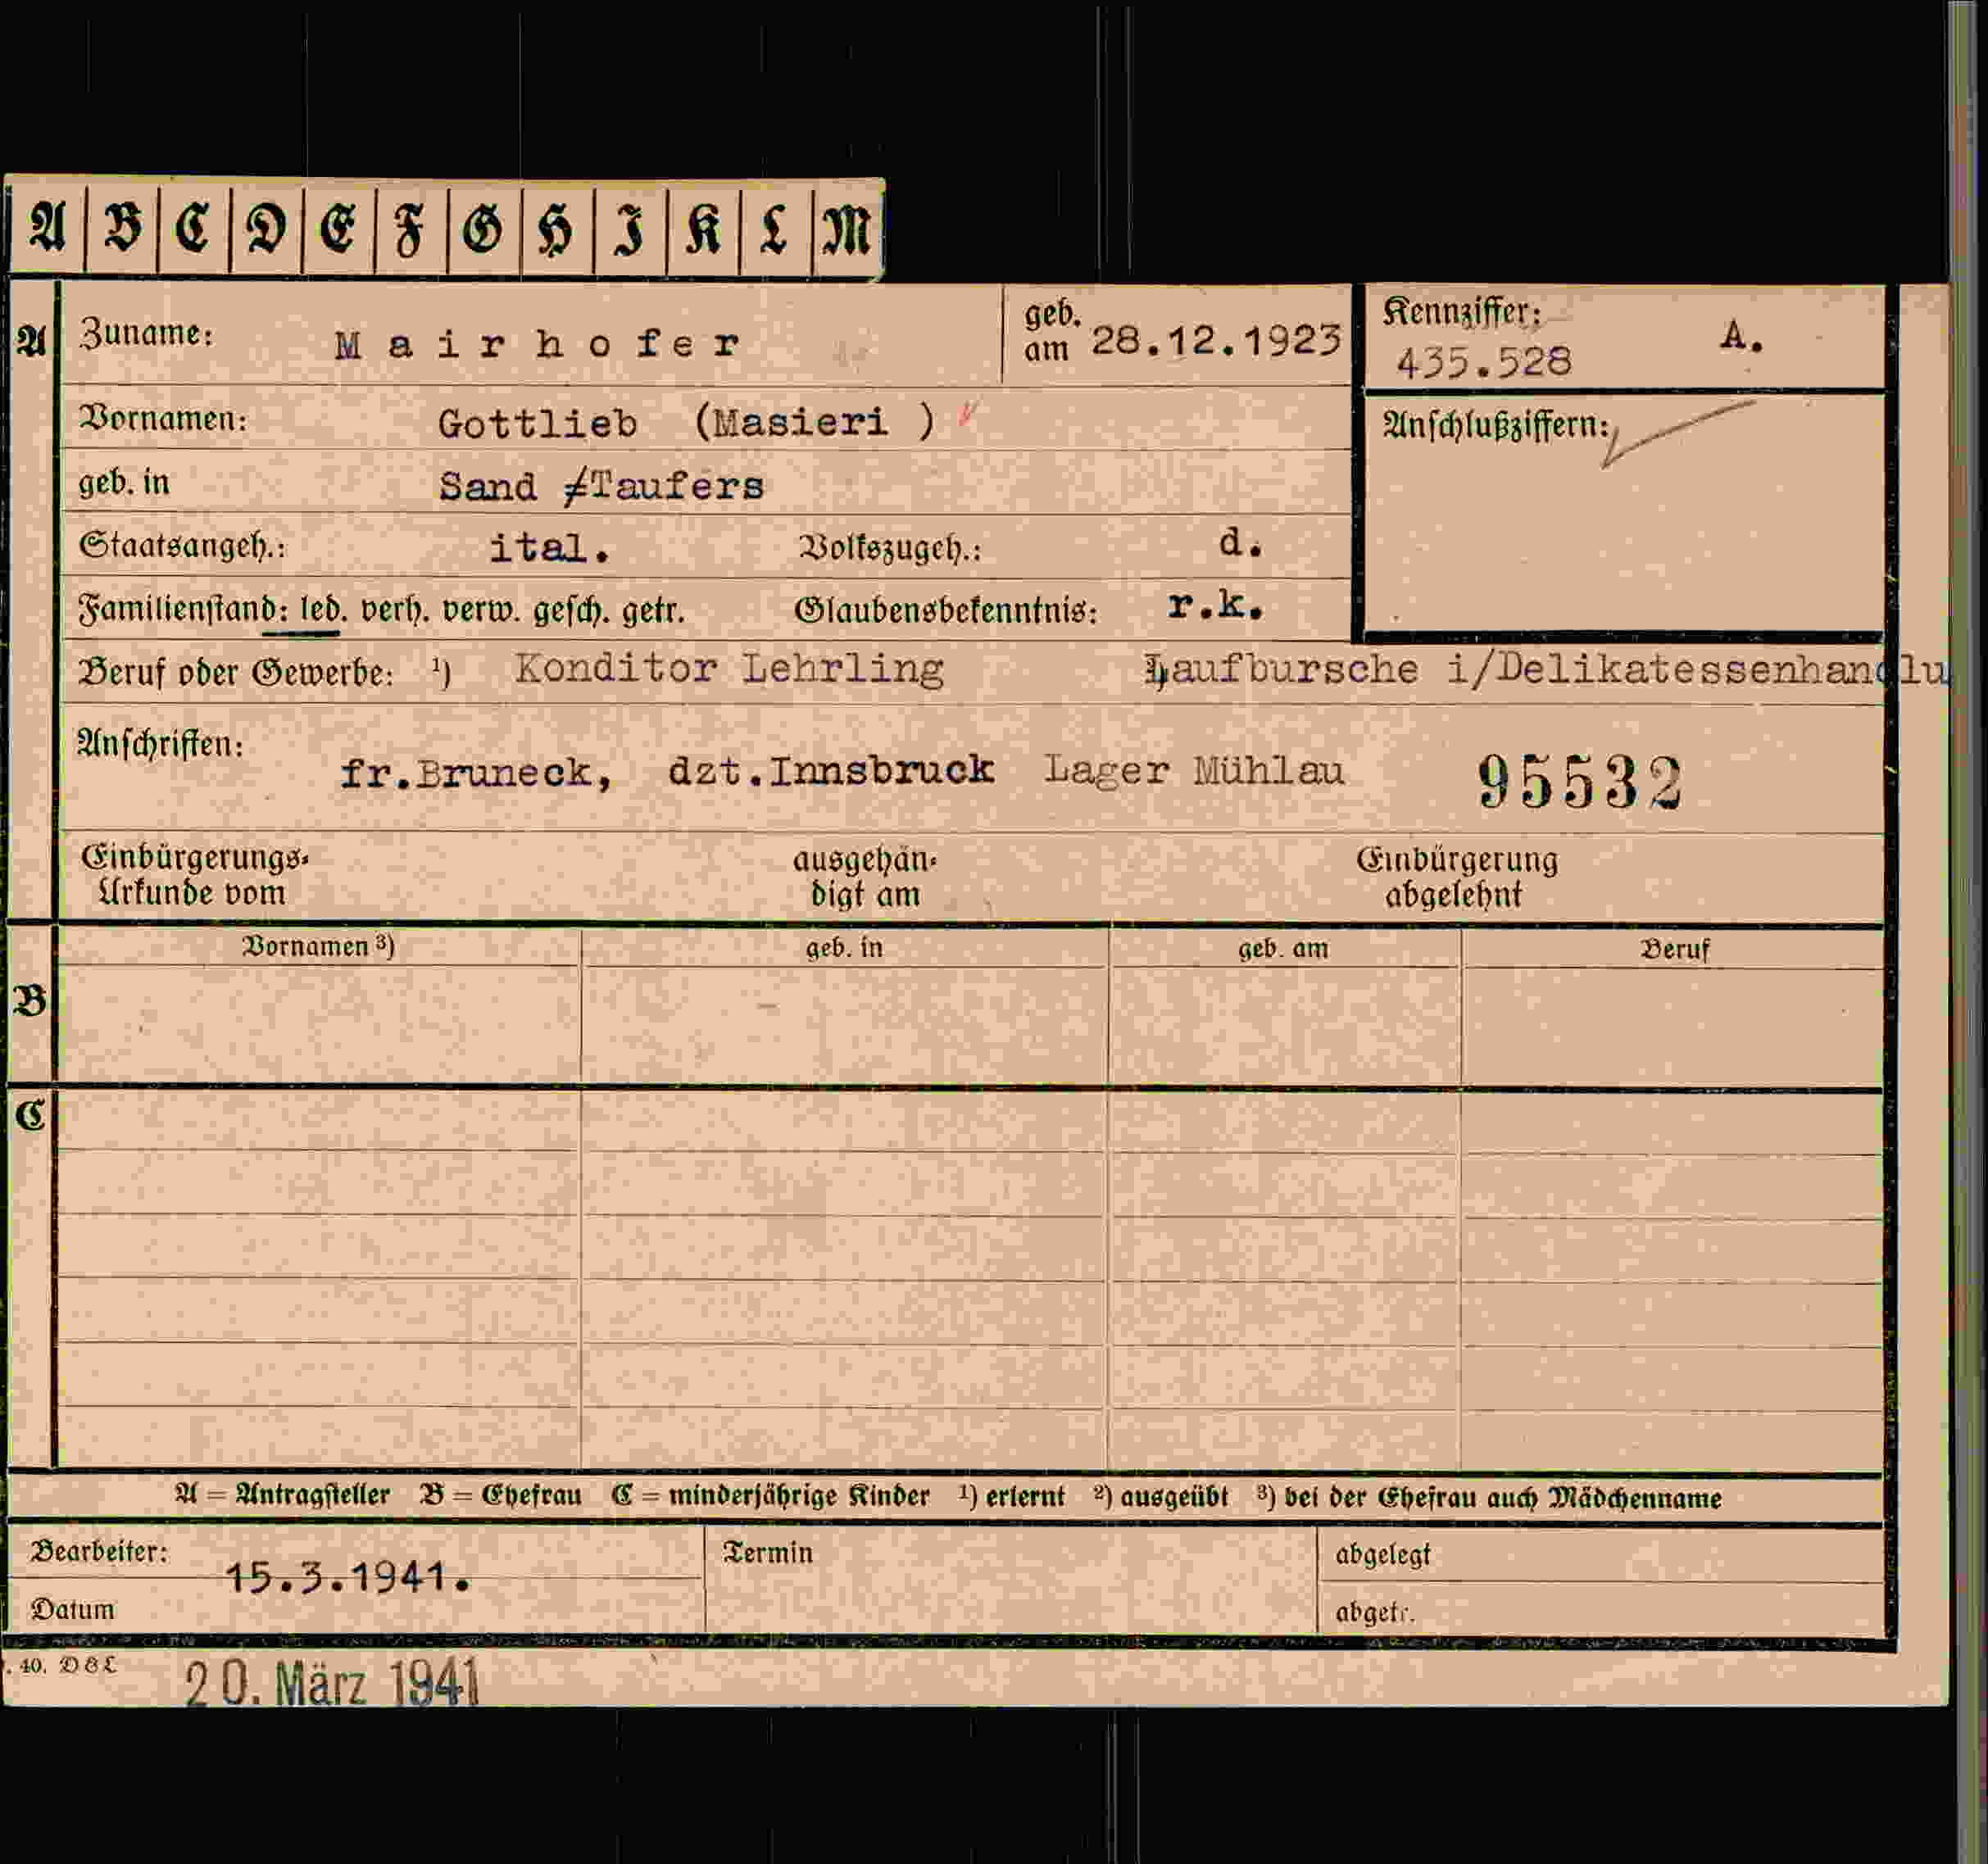 A B C D E F G H I K L M
A Zuname: Mairhofer geb. am 28.12.1923 Kennziffer: 435.528 A.
Vornamen: Gottlieb (Masieri ) Anschlußziffern:
geb. in Sand ≠Taufers
Staatsangeh.: ital. Volkszugeh.: d.
Familienstand: led. verh. verw. gesch. getr. Glaubensbekenntnis: r.k.
Beruf oder Gewerbe: ¹) Konditor Lehrling Laufbursche i/Delikatessenhandlu
Anschriften: fr.Bruneck, dzt.Innsbruck Lager Mühlau 95532
Einbürgerungs- ausgehän- Einbürgerung
Urkunde vom digt am abgelehnt
Vornamen ³) geb. in geb. am Beruf
B
C
A = Antragsteller B = Ehefrau C = minderjährige Kinder ¹) erlernt ²) ausgeübt ³) bei der Ehefrau auch Mädchenname
Bearbeiter: 15.3.1941. Termin abgelegt
Datum abgetr.
. 40. DBL
20. März 1941